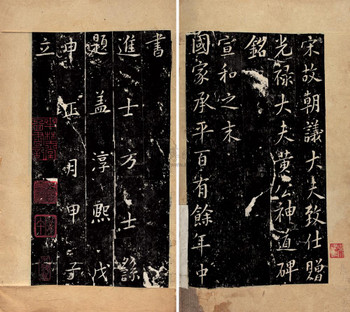 宋故朝議大夫致仕贈
光禄大夫黄公神道碑
銘
宣和之末
國家承平百有餘年中
書
進士方士繇
題蓋淳熙戊
申正月甲子
立